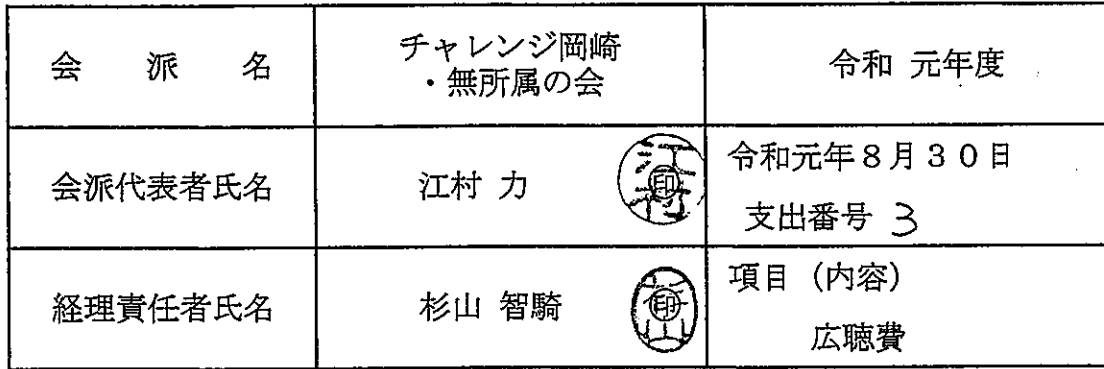 会派名
チャレンジ岡崎
・無所属の会
令和 元年度
会派代表者氏名
江村 力
江村
印
令和元年8月30日
支出番号 3
経理責任者氏名
杉山 智騎
印
項目（内容）
広聴費